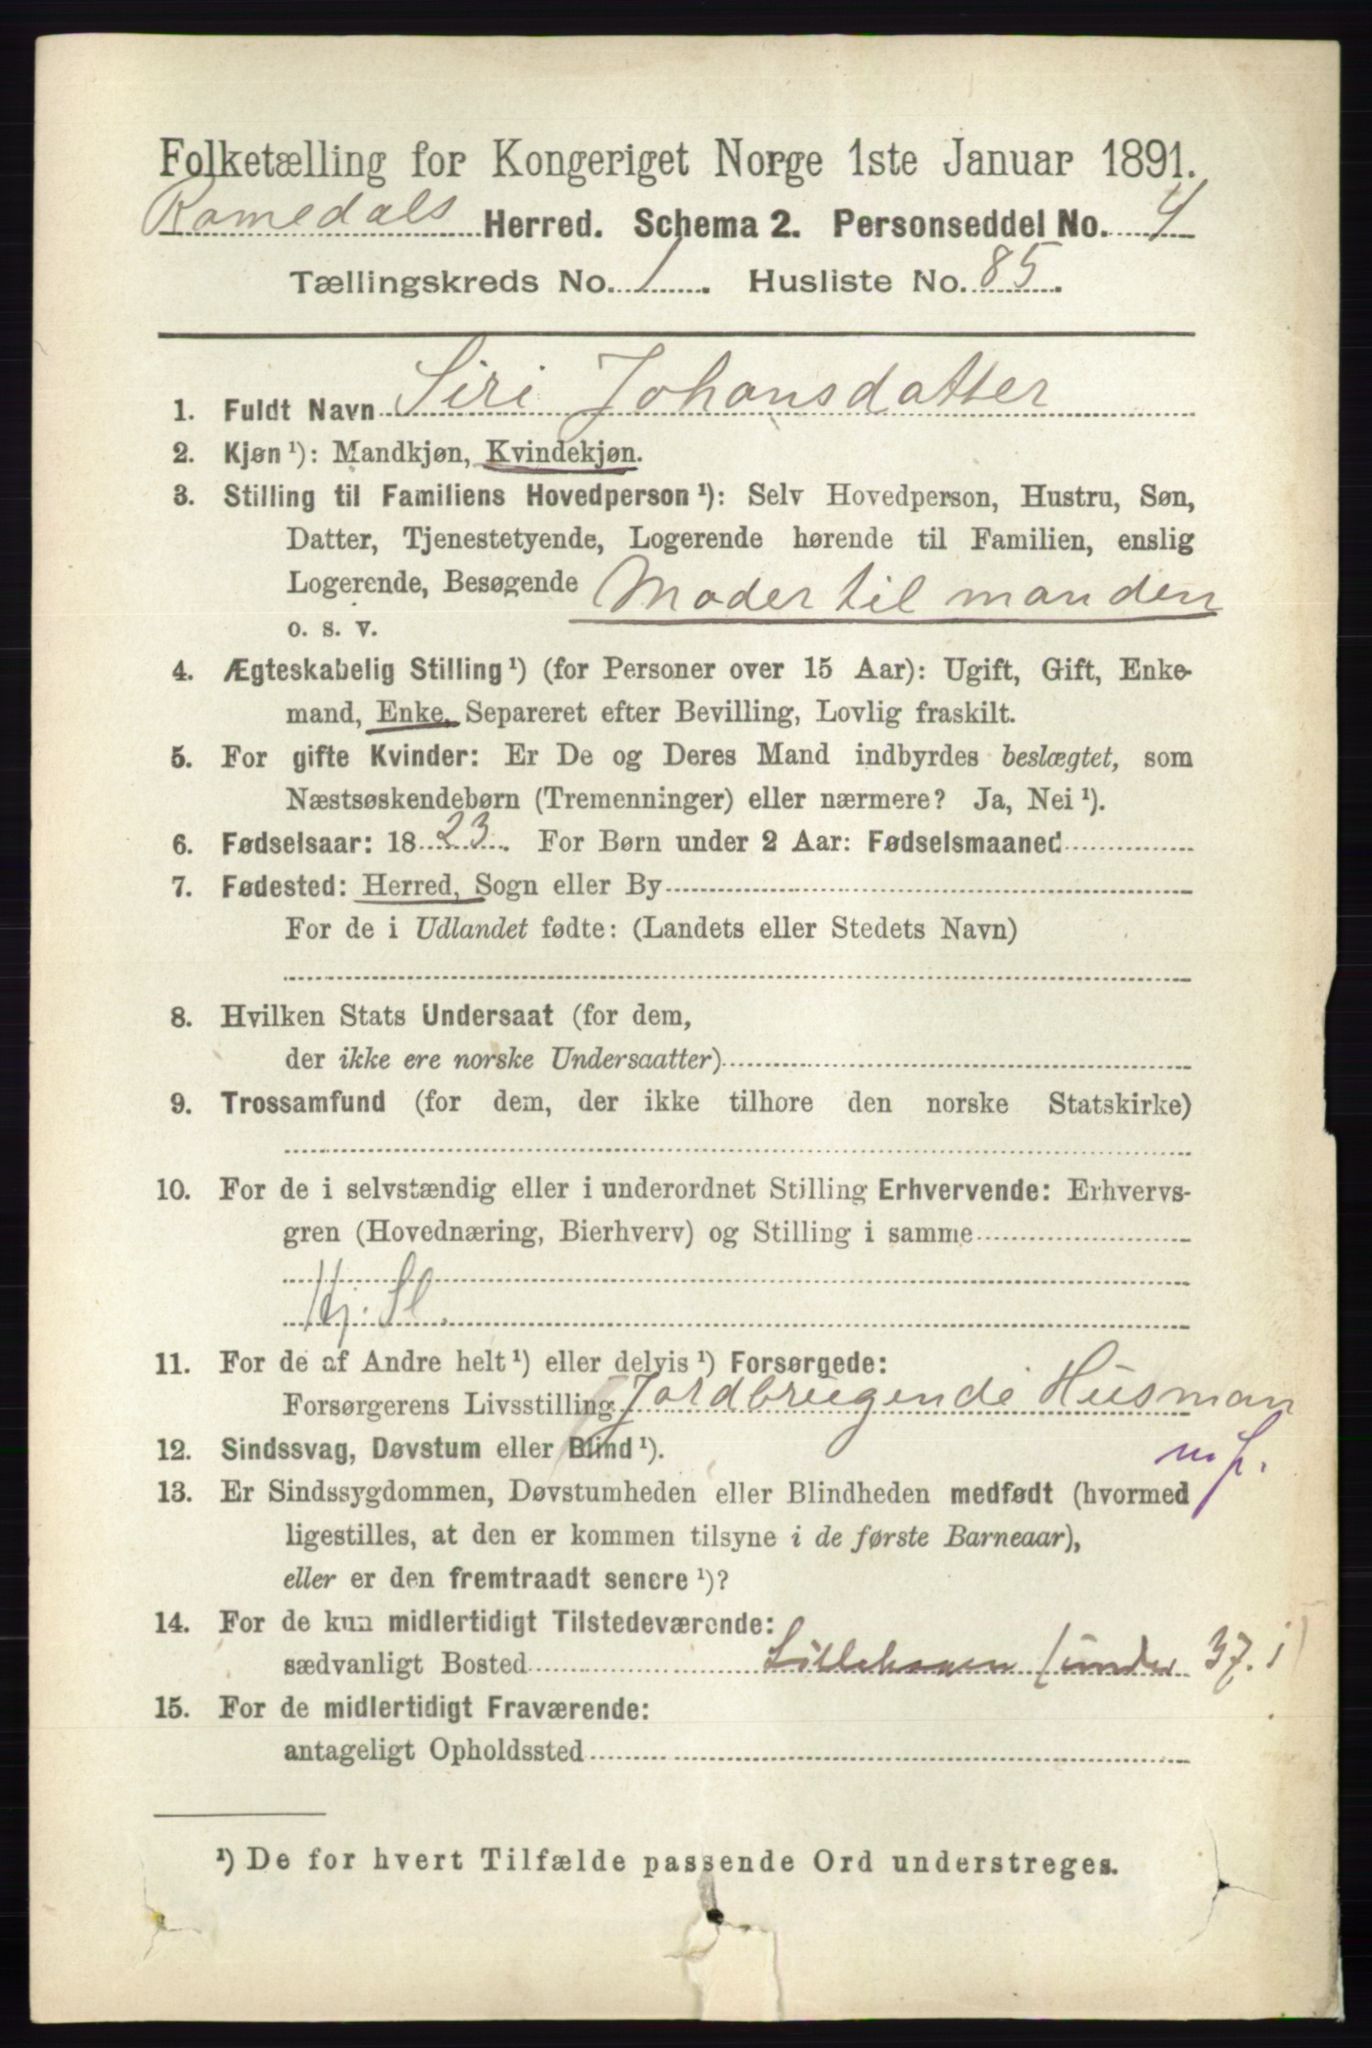 Folketælling for Kongeriget Norge 1ste Januar 1891.
Romedals Herred. Schema 2. Personseddel No. 4
Tællingskreds No. 1. Husliste No. 85.
1. Fuldt Navn Siri Johansdatter
2. Kjøn ¹): Mandkjøn, Kvindekjøn.
3. Stilling til Familiens Hovedperson ¹): Selv Hovedperson, Hustru, Søn,
Datter, Tjenestetyende, Logerende hørende til Familien, enslig
Logerende, Besøgende Moder til manden
o. s. v.
4. Ægteskabelig Stilling ¹) (for Personer over 15 Aar): Ugift, Gift, Enke-
mand, Enke, Separeret efter Bevilling, Lovlig fraskilt.
5. For gifte Kvinder: Er De og Deres Mand indbyrdes beslægtet, som
Næstsøskendebørn (Tremenninger) eller nærmere? Ja, Nei ¹).
6. Fødselsaar: 1823. For Børn under 2 Aar: Fødselsmaaned
7. Fødested: Herred, Sogn eller By
For de i Udlandet fødte: (Landets eller Stedets Navn)
8. Hvilken Stats Undersaat (for dem,
der ikke ere norske Undersaatter)
9. Trossamfund (for dem, der ikke tilhore den norske Statskirke)
10. For de i selvstændig eller i underordnet Stilling Erhvervende: Erhvervs-
gren (Hovednæring, Bierhverv) og Stilling i samme
Hj. Sl.
11. For de af Andre helt ¹) eller delvis ¹) Forsørgede:
Forsørgerens Livsstilling Jordbrugende Husman
m. j.
12. Sindssvag, Døvstum eller Blind ¹).
13. Er Sindssygdommen, Døvstumheden eller Blindheden medfødt (hvormed
ligestilles, at den er kommen tilsyne i de første Barneaar),
eller er den fremtraadt senere ¹)?
14. For de kun midlertidigt Tilstedeværende:
sædvanligt Bosted under 37.1
15. For de midlertidigt Fraværende:
antageligt Opholdssted
¹) De for hvert Tilfælde passende Ord understreges.